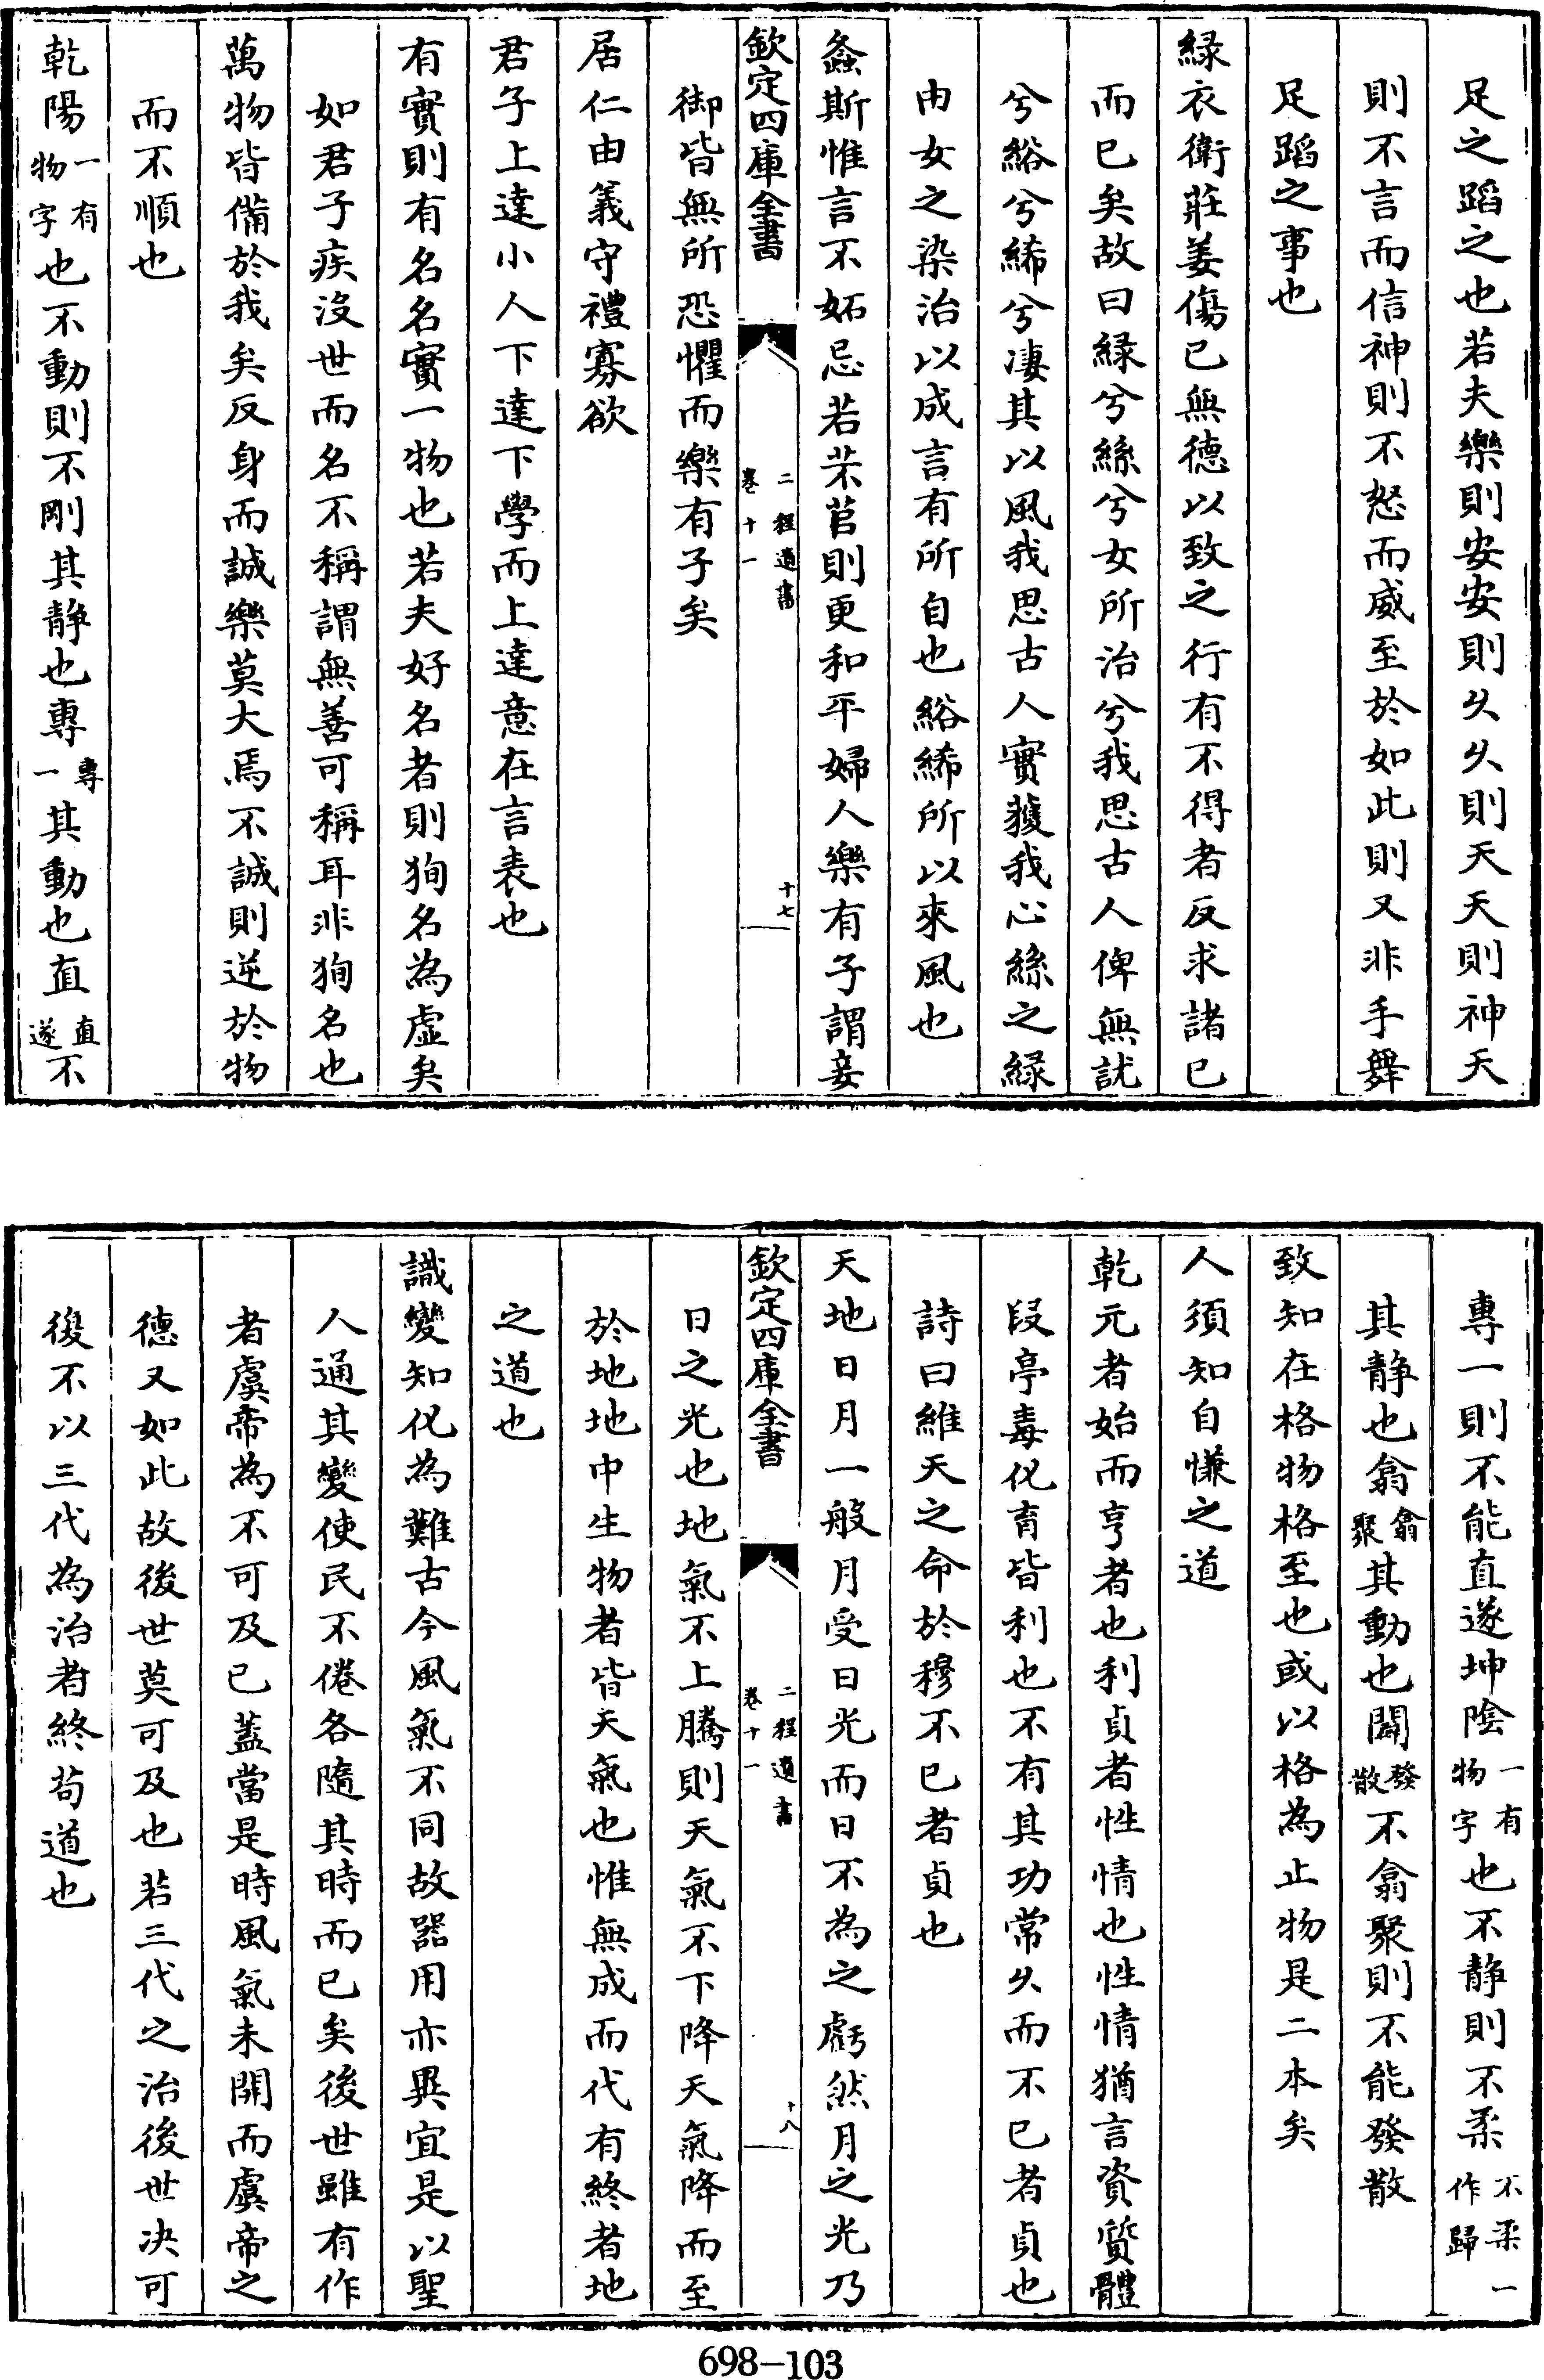 足之蹈之也若夫樂則安安則久久則天天則神天
則不言而信神則不怒而威至於如此則又非手舞
足蹈之事也
緑衣衛莊姜傷已無德以致之行有不得者反求諸已
而已矣故曰緑兮絲兮女所治兮我思古人俾無訧
兮綌兮絺兮凄其以風我思古人實獲我心絲之緑
由女之染治以成言有所自也綌絺所以來風也
螽斯惟言不妬忌若芣苢則更和平婦人樂有子謂妾
欽定四庫全書
二程遺書
卷十一
十七
御皆無所恐懼而樂有子矣
居仁由義守禮寡欲
君子上達小人下達下學而上達意在言表也
有實則有名名實一物也若夫好名者則狥名為虛矣
如君子疾沒世而名不稱謂無善可稱耳非狥名也
萬物皆備於我矣反身而誠樂莫大焉不誠則逆於物
而不順也
乾陽一有物字也不動則不剛其静也專專一其動也直直遂不
專一則不能直遂坤陰一有物字也不静則不柔不柔一作歸
其静也翕翕聚其動也闢發散不翕聚則不能發散
致知在格物格至也或以格為止物是二本矣
人須知自慊之道
乾元者始而亨者也利貞者性情也性情猶言資質體
段亭毒化育皆利也不有其功常久而不已者貞也
詩曰維天之命於穆不已者貞也
天地日月一般月受日光而日不為之虧然月之光乃
欽定四庫全書
二程遺書
卷十一
十八
日之光也地氣不上騰則天氣不下降天氣降而至
於地地中生物者皆天氣也惟無成而代有終者地
之道也
識變知化為難古今風氣不同故器用亦異宜是以聖
人通其變使民不倦各隨其時而已矣後世雖有作
者虞帝為不可及已蓋當是時風氣未開而虞帝之
德又如此故後世莫可及也若三代之治後世决可
復不以三代為治者終茍道也
698-103